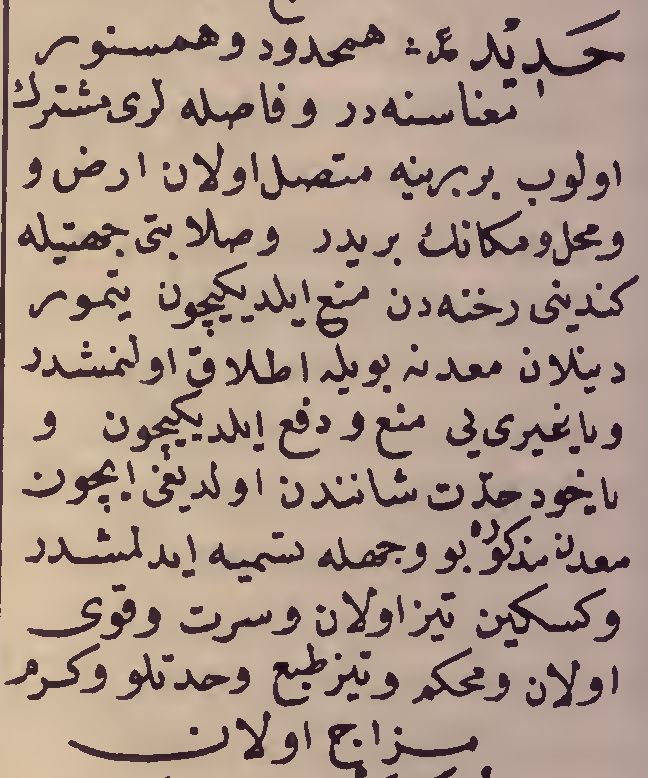 حديد ع: همحدود و همسنور
معناسنه در و فاصله لری مشترك
اولوب بربرینه متصل اولان ارض و
ومحل و مكانك بریدر وصلابتی جهتیله
كندینی رخنه دن منع ایلدیكیچون یتمور
دینلان معدنه بویله اطلاق اولنمشدر
ویا غیری یی منع و دفع ایلدیكیچون و
یاخود حدّت شانندن اولدیغی ایچون
معدن مذكوره بو وجهله تسمیه ایدلمشدر
وكسكین تیز اولان وسرت وقوی
اولان ومحكم وتیز طبع وحدتلو وكرم
مزاج اولان